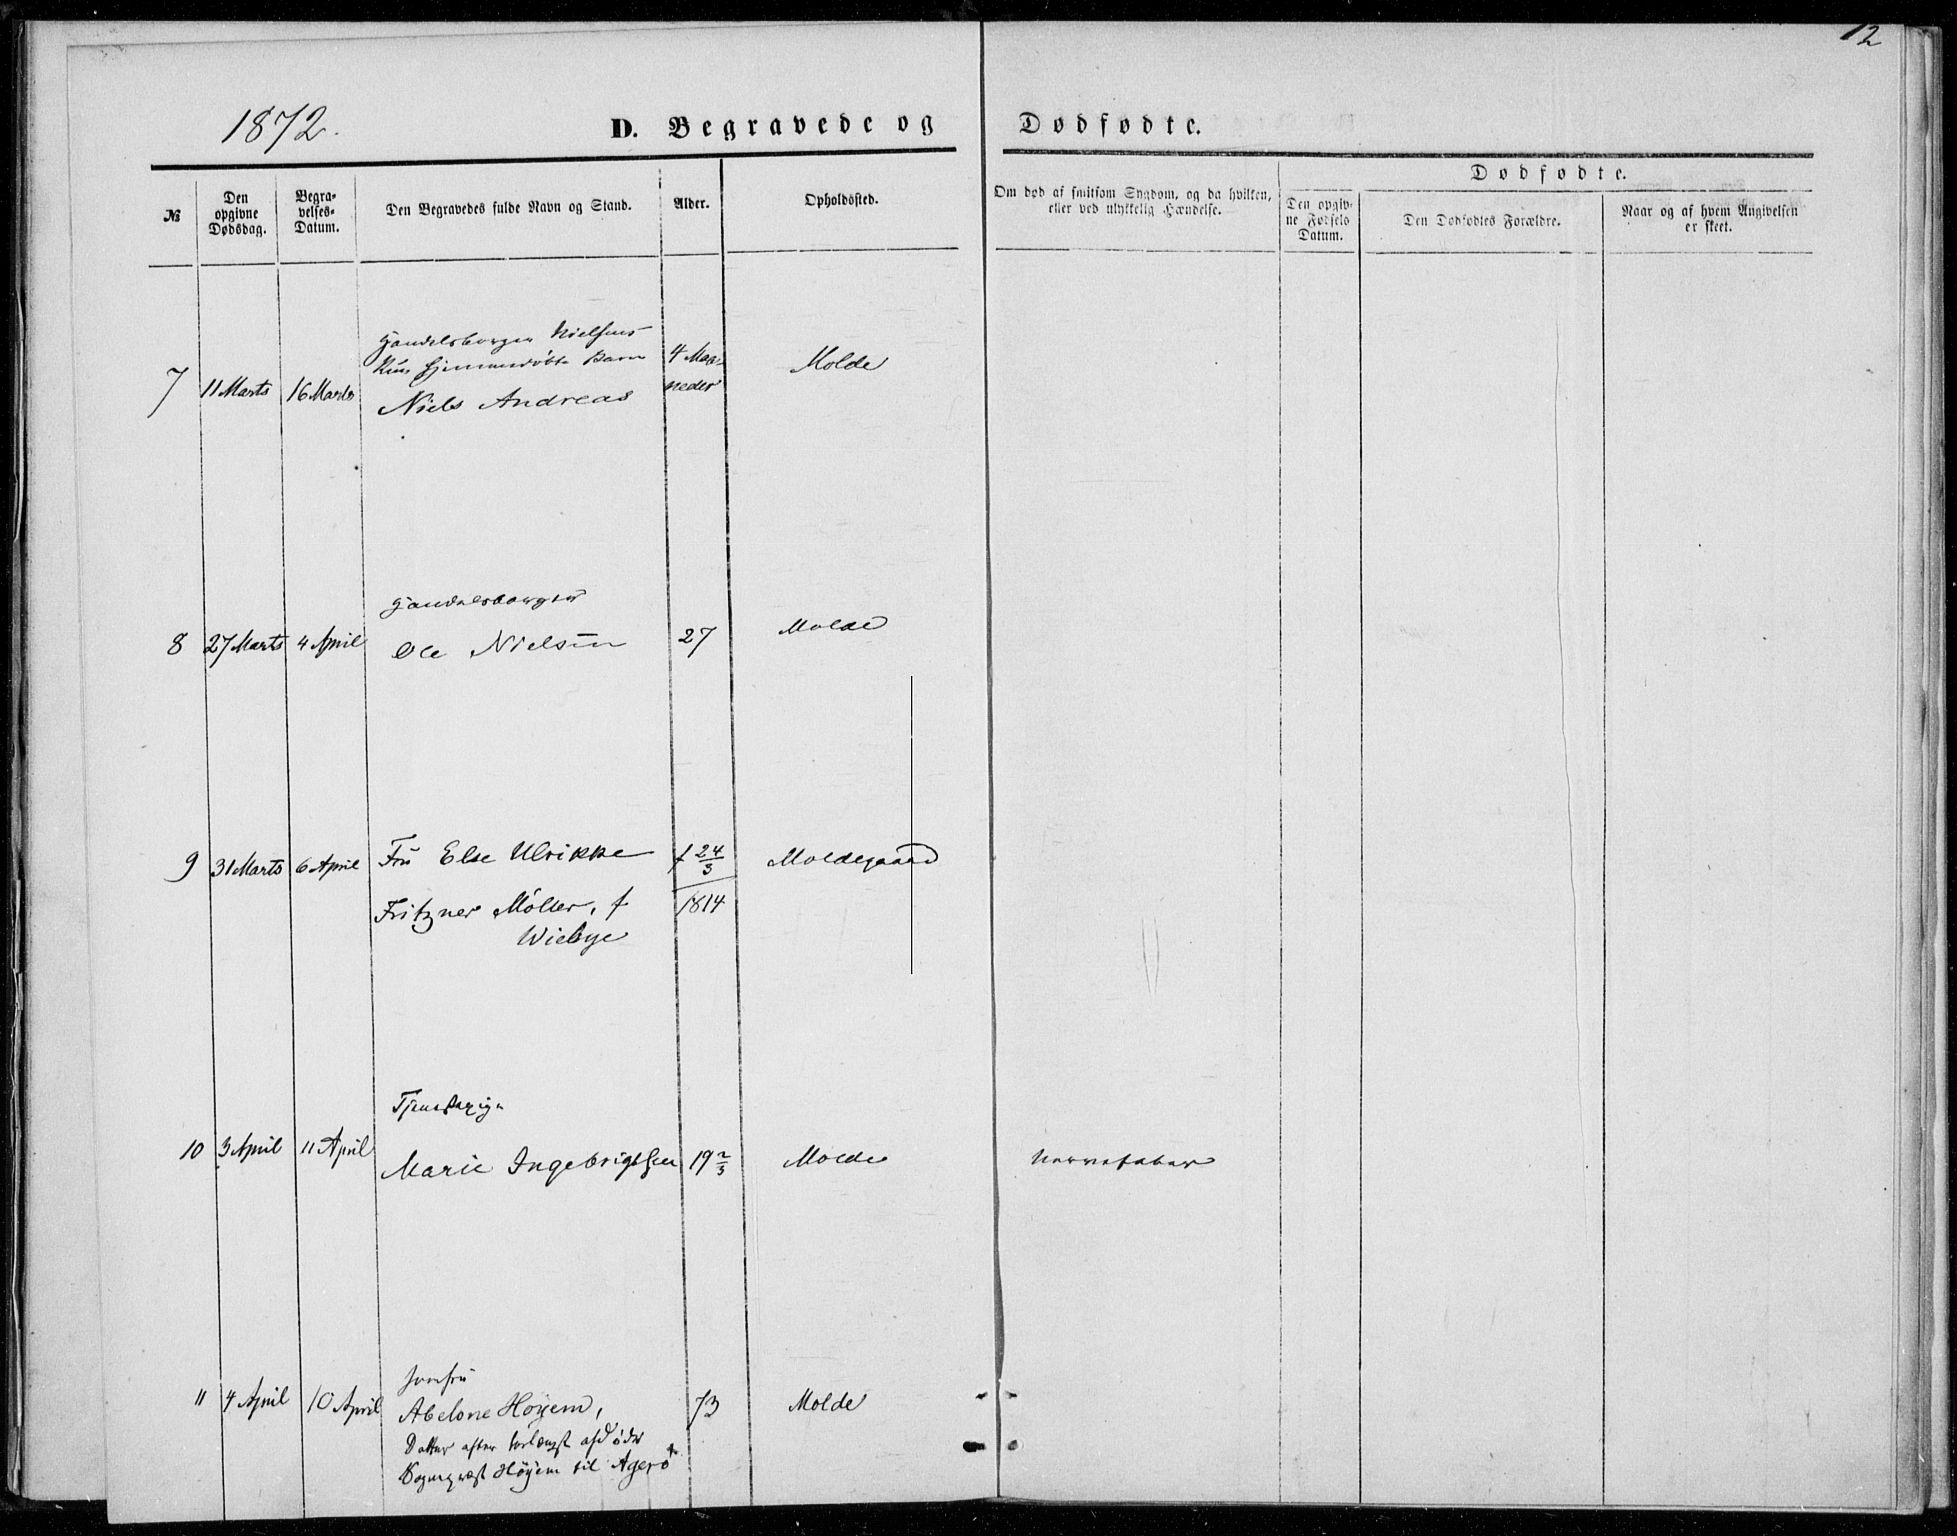 12
1872.
D. Begravede og Dødfødte.
Dødfødte.
№
Den opgivne Dødsdag.
Begravelses-Datum.
Den Begravedes fulde Navn og Stand.
Alder.
Opholdssted.
Om død af smitsom Sygdom, og da hvilken,
eller ved ulykkelig Hændelse.
Den opgivne Fødsels Datum.
Den Dødfødtes Forældre.
Naar og af hvem Angivelsen
er skeet.
Handelsborger Nielsens
Kun hjemmedøbte Barn
7 11 Marts 16 Marts Niels Andreas 4 Maaneder Molde
Handelsborger
8 27 Marts 4 April Ole Nielsen 27 Molde
9 31 Marts 6 April Fru Else Ulrikke f 24/3 Moldegaard
Fritzner Møller, f 1814
Wiebye
10 3 April 11 April Marie Ingebrigtsen 19 2/3 Molde Nervefeber
Jomfru
11 4 April 10 April Abelone Høyem, 73 Molde
Datter efter forlængst afdøde
Sognepræst Høyem til Agerø